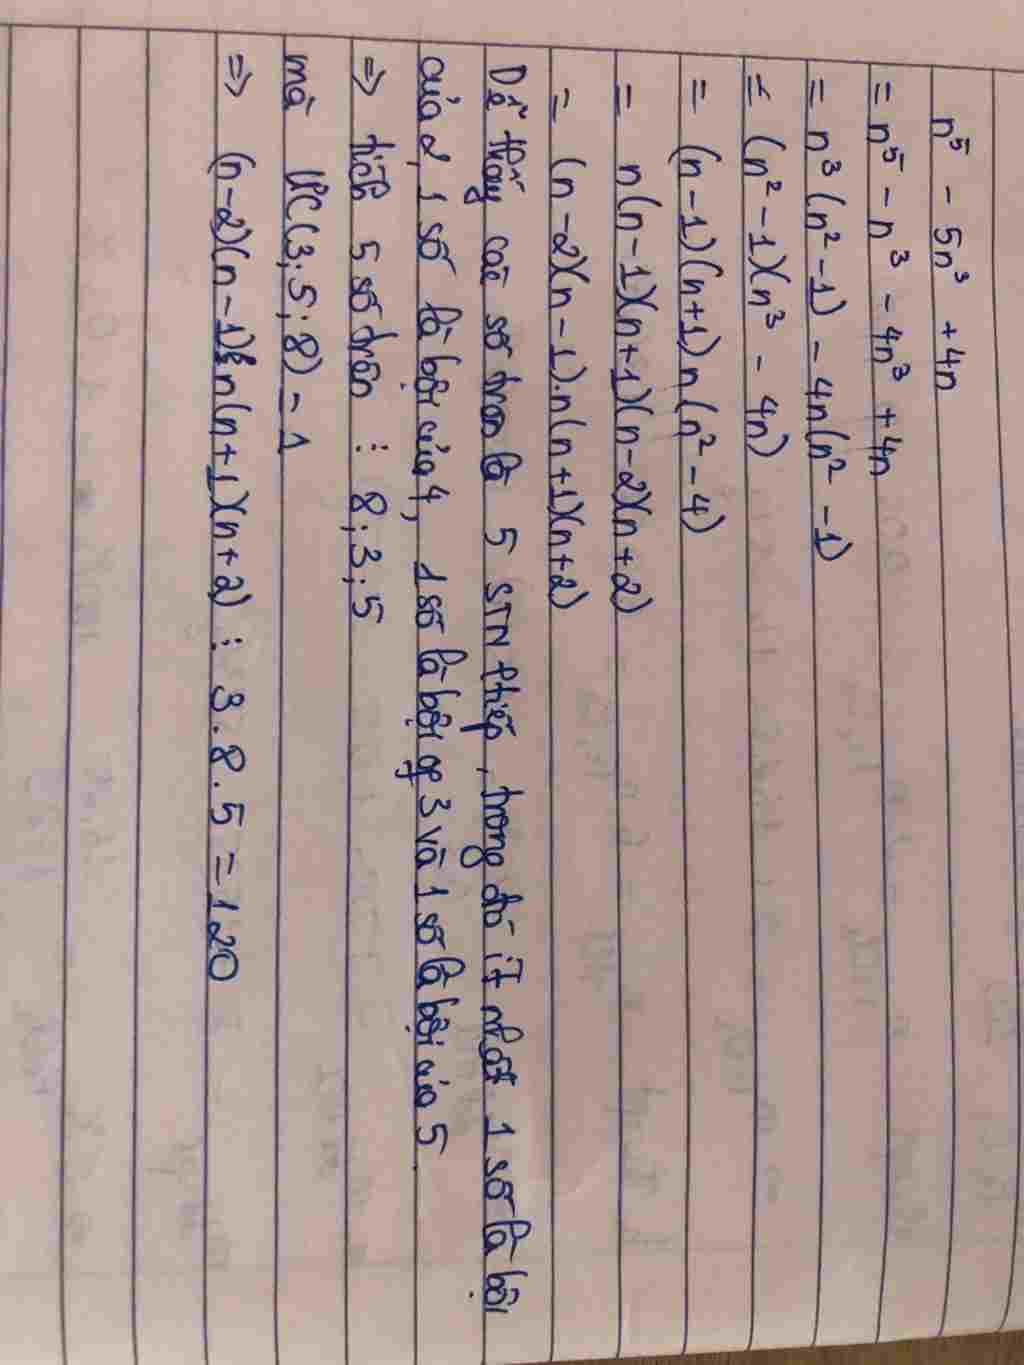 n⁵ - 5n³ + 4n
= n⁵ - n³ - 4n³ + 4n
= n³(n² - 1) - 4n(n² - 1)
= (n² - 1)(n³ - 4n)
= (n - 1)(n + 1) n (n² - 4)
= n(n - 1)(n + 1)(n - 2)(n + 2)
= (n - 2)(n - 1).n(n + 1)(n + 2)
Dễ thấy các số trên là 5 STN tiếp, trong đó ít nhất 1 số là bội
của 2, 1 số là bội của 4, 1 số là bội of 3 và 1 số là bội của 5
=> tích 5 số trên ⋮ 8; 3; 5
mà (3; 5; 8) = 1
=> (n - 2)(n - 1)n(n + 1)(n + 2) ⋮ 3.8.5 = 120